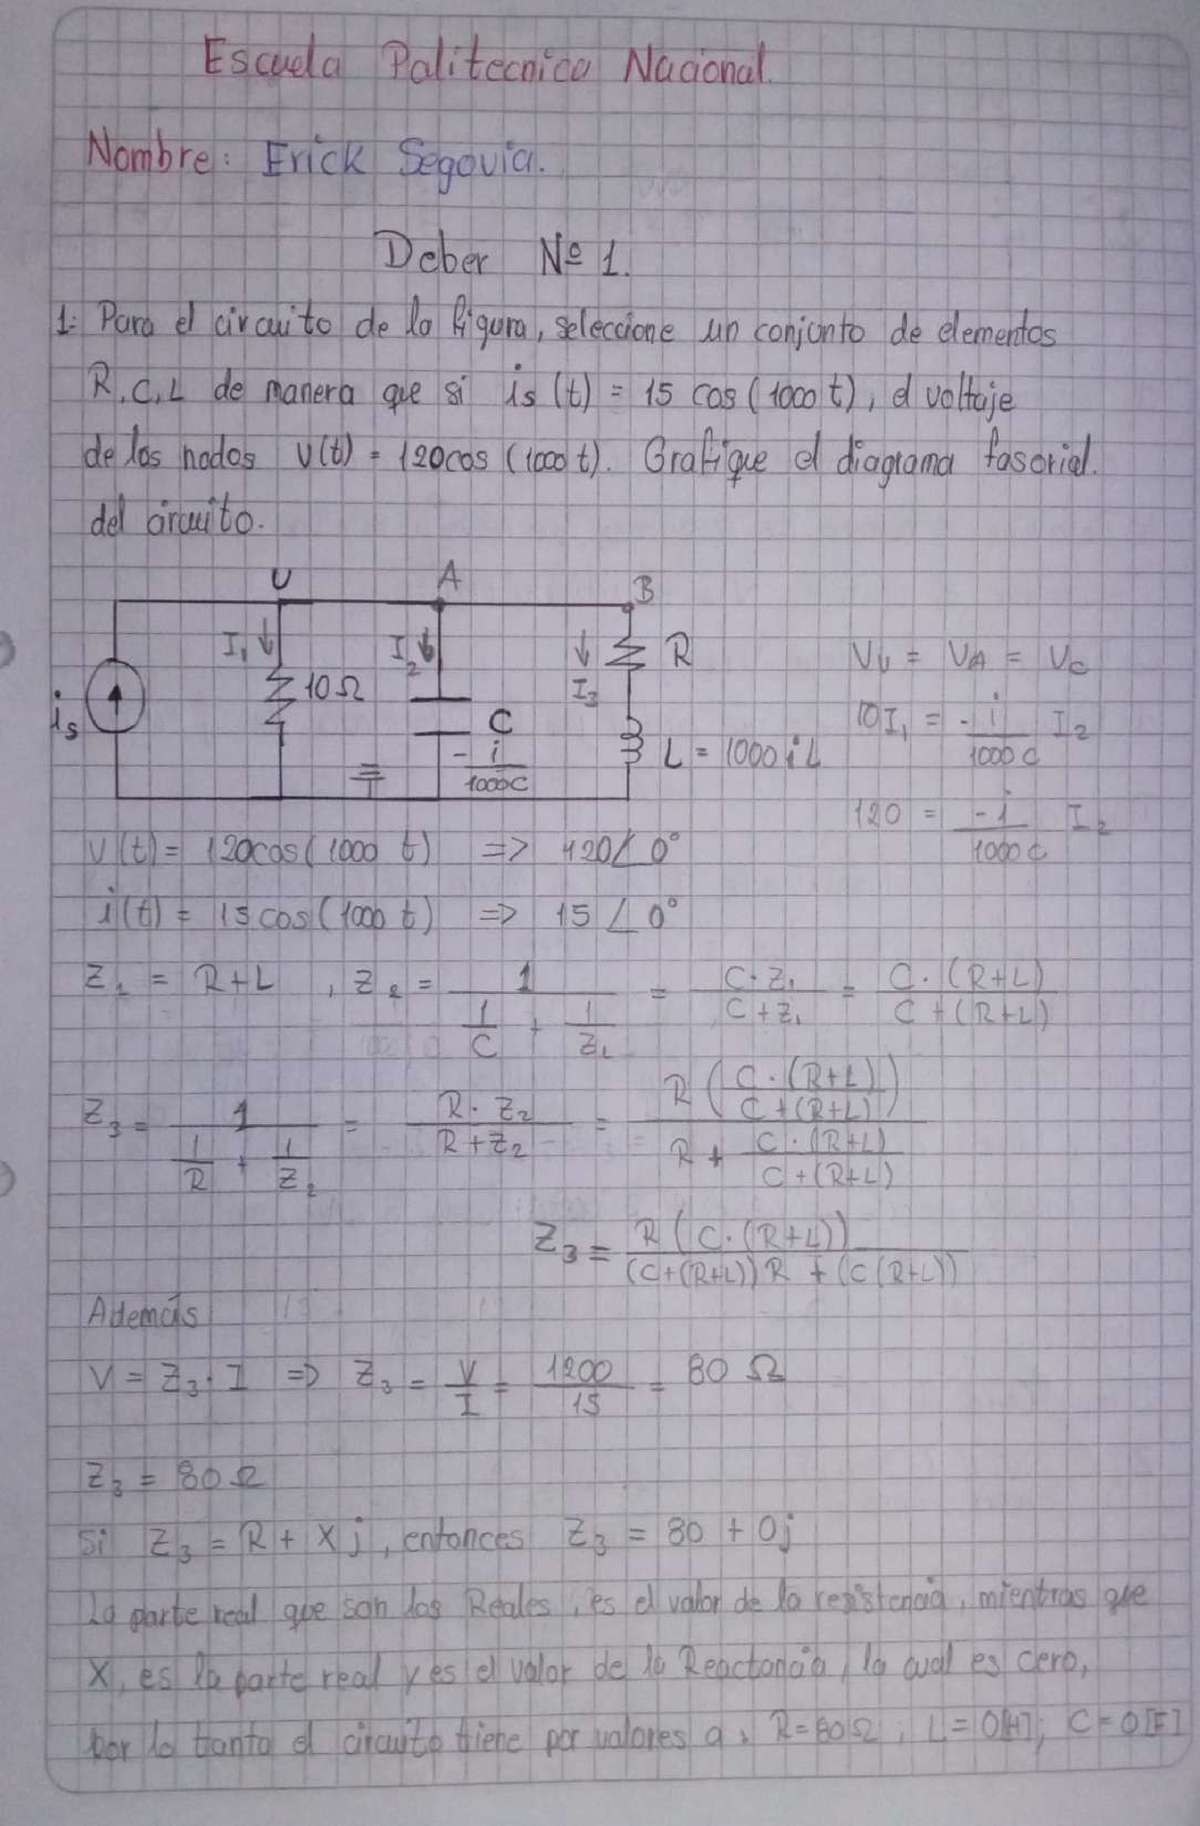 Escuela Politecnica Nacional.
Nombre: Erick Segovia.
Deber Nº 1.
1: Para el circuito de la figura, seleccione un conjunto de elementos
R, C, L de manera que si is (t) = 15 cos (1000 t), el voltaje
de los nodos v(t) = 120cos (1000 t). Grafique el diagrama fasorial.
del circuito.
U A B
I₁ I₂ I₃ R
is 10Ω C
-i/1000C
L = 1000 i L
Vu = VA = Vc
10I₁ = -i/1000 C I₂
120 = -i/1000 C I₂
v(t) = 120cos(1000 t) => 120∠0°
i(t) = 15 cos(1000 t) => 15∠0°
Z₁ = R+L , Z₂ = 1/(1/C + 1/Z₁) = C·Z₁/(C+Z₁) = C·(R+L)/(C+(R+L))
Z₃ = 1/(1/R + 1/Z₂) = R·Z₂/(R+Z₂) = R(C·(R+L)/(C+(R+L)))/(R + C·(R+L)/(C+(R+L)))
Z₃ = R(C·(R+L))/((C+(R+L))R + (C(R+L)))
Además
V = Z₃·I => Z₃ = V/I = 1200/15 = 80 Ω
Z₃ = 80Ω
Si Z₃ = R + Xj, entonces Z₃ = 80 + 0j
La parte real que son los Reales, es el valor de la resistencia, mientras que
X, es la parte real y es el valor de la Reactancia, la cual es cero,
por lo tanto el circuito tiene por valores a, R=80Ω; L=0[H]; C=0[F]